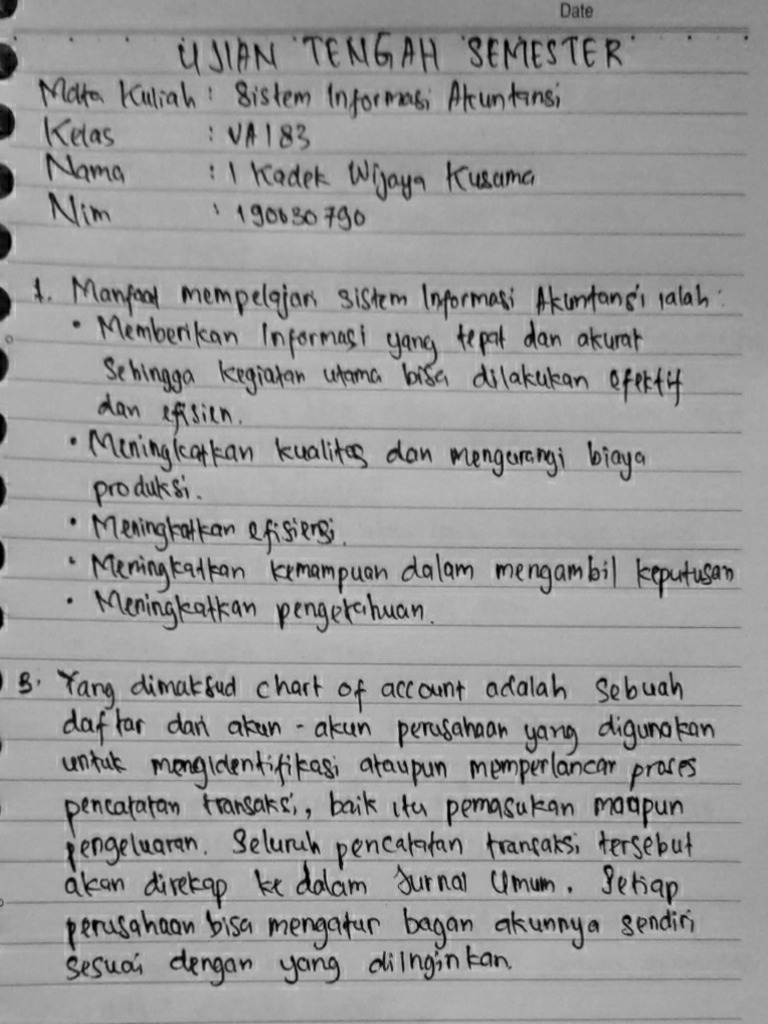 Date
UJIAN TENGAH SEMESTER
Mata Kuliah : Sistem Informasi Akuntansi
Kelas : VA183
Nama : I Kadek Wijaya Kusama
Nim : 190030790
1. Manfaat mempelajari sistem Informasi Akuntansi ialah :
• Memberikan Informasi yang tepat dan akurat
Sehingga kegiatan utama bisa dilakukan efektif
dan efisien.
• Meningkatkan kualitas dan mengurangi biaya
produksi.
• Meningkatkan efisiensi.
• Meningkatkan kemampuan dalam mengambil keputusan
• Meningkatkan pengetahuan.
3. Yang dimaksud chart of account adalah sebuah
daftar dari akun - akun perusahaan yang digunakan
untuk mengidentifikasi ataupun memperlancar proses
pencatatan transaksi, baik itu pemasukan maupun
pengeluaran. Seluruh pencatatan transaksi tersebut
akan direkap ke dalam Jurnal Umum. Setiap
perusahaan bisa mengatur bagan akunnya sendiri
sesuai dengan yang diinginkan.